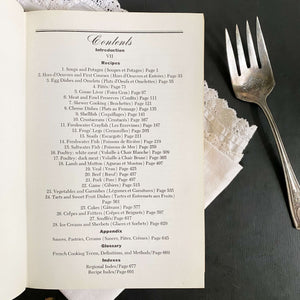 Contents
Introduction
VII
Recipes
1. Soups and Potages (Soupes et Potages) Page 1
2. Hors-D'Oeuvres and First Courses (Hors-D'Oeuvres et Entrées) Page 33
3. Egg Dishes and Omelets (Plats de Oeufs et Omelettes) Page
4. Pâtés) Page 71
5. Goose Liver (Foies Gras) Page 87
6. Meat and Fowl Preserves (Confits) Page
7. Skewer Cooking (Brochettes) Page
8. Cheese Dishes (Plats au Fromage) Page
9. Shellfish (Coquillages) Page
10. Crustaceans (Crustacés) Page
11. Freshwater Crayfish (Les Ecrevisses) Page
12. Frogs' Legs (Grenouilles) Page
13. Snails (Escargots) Page
14. Freshwater Fish (Poissons de Rivière) Page
15. Saltwater Fish (Poissons de Mer) Page
16. Poultry: white-meat (Volaille à Chair Blanche) Page
17. Poultry: dark meat (Volaille à Chair Brune) Page
18. Lamb and Mutton (Agneau et Mouton) Page
19. Veal (Veau) Page
20. Beef (Boeuf) Page
21. Pork (Porc) Page
22. Game (Gibiers) Page
23. Vegetables and Garnishes (Légumes et Garnitures) Page
24. Tarts and Sweet Fruit Dishes (Tartes et Entremets aux Fruits)
Page
25. Cakes (Gâteaux) Page 577
26. Crêpes and Fritters (Crêpes et Beignets) Page
27. Soufflés) Page
28. Ice Cream and Sherbets (Glaces et Sorbets) Page
Appendix
Sauces, Pastries, Creams (Sauces, Pâtes, Crèmes) Page
Glossary
French Cooking Terms, Definitions, and Methods) Page
Indexes
Regional Index/Page 677
Recipe Index/Page 691